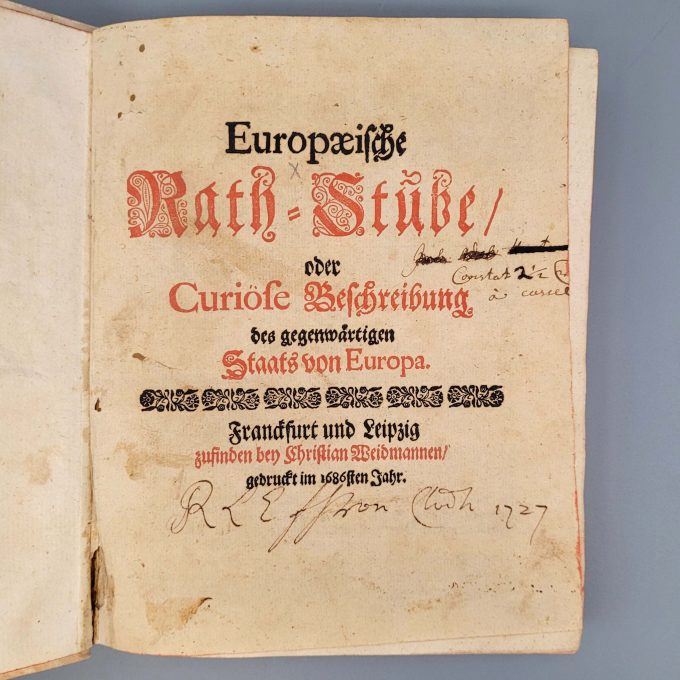 Europæische
Rath-Stůbe/
oder
Constat 2½
Curiöse Beschreibung
à cassel
des gegenwärtigen
Staats von Europa.
Franckfurt und Leipzig
zufinden bey Christian Weidmannen/
gedruckt im 1686sten Jahr.
R L E von 1727